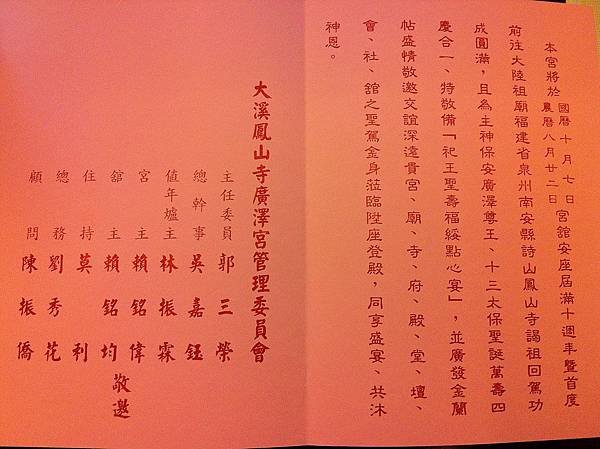 本宮將於國曆十月七日農曆八月廿二日宮舘安座屆滿十週年暨首度
前往大陸祖廟福建省泉州南安縣詩山鳳山寺謁祖回駕功
成圓滿，且為主神保安廣澤尊王、十三太保聖誕萬壽四
慶合一、特敬備「祀王聖壽福綏點心宴」，並廣發金蘭
帖盛情敬邀交誼深遠貴宮、廟、寺、府、殿、堂、壇、
會、社、舘之聖駕金身蒞臨陞座登殿，同享盛宴、共沐
神恩。
大溪鳳山寺廣澤宮管理委員會
主任委員 郭三榮
總幹事 吳嘉鈺
值年爐主 林振霖
宮主 賴銘偉
舘主 賴銘均
住持 莫利
總務 劉秀花
顧問 陳振僑
敬邀